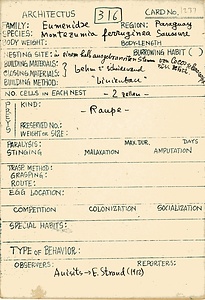 ARCHITECTUS 316 CARD No. 1237
FAMILY: Eumenidae REGION: Paraguay
SPECIES: Montezumia ferruginea Saussure
BODY WEIGHT: BODY-LENGTH
NESTING SITE: in einem BURROWING HABIT ( )
BUILDING MATERIALS:
CLOSING MATERIALS: Lehm
BUILDING METHOD:
NO. CELLS IN EACH NEST - 2 zellen -
PREYS KIND: - Raupe -
PRESERVED NO.:
WEIGHT OR SIZE:
PARALYSIS: MAX. DUR. DAYS
STINGING MALAXATION AMPUTATION
TRASP. METHOD:
GRASPING:
ROUTE:
EGG LOCATION:
COMPETITION COLONIZATION SOCIALIZATION
SPECIAL HABITS:
TYPE OF BEHAVIOR:
OBSERVERS: REPORTERS:
Anisits → E. Strand (1912)